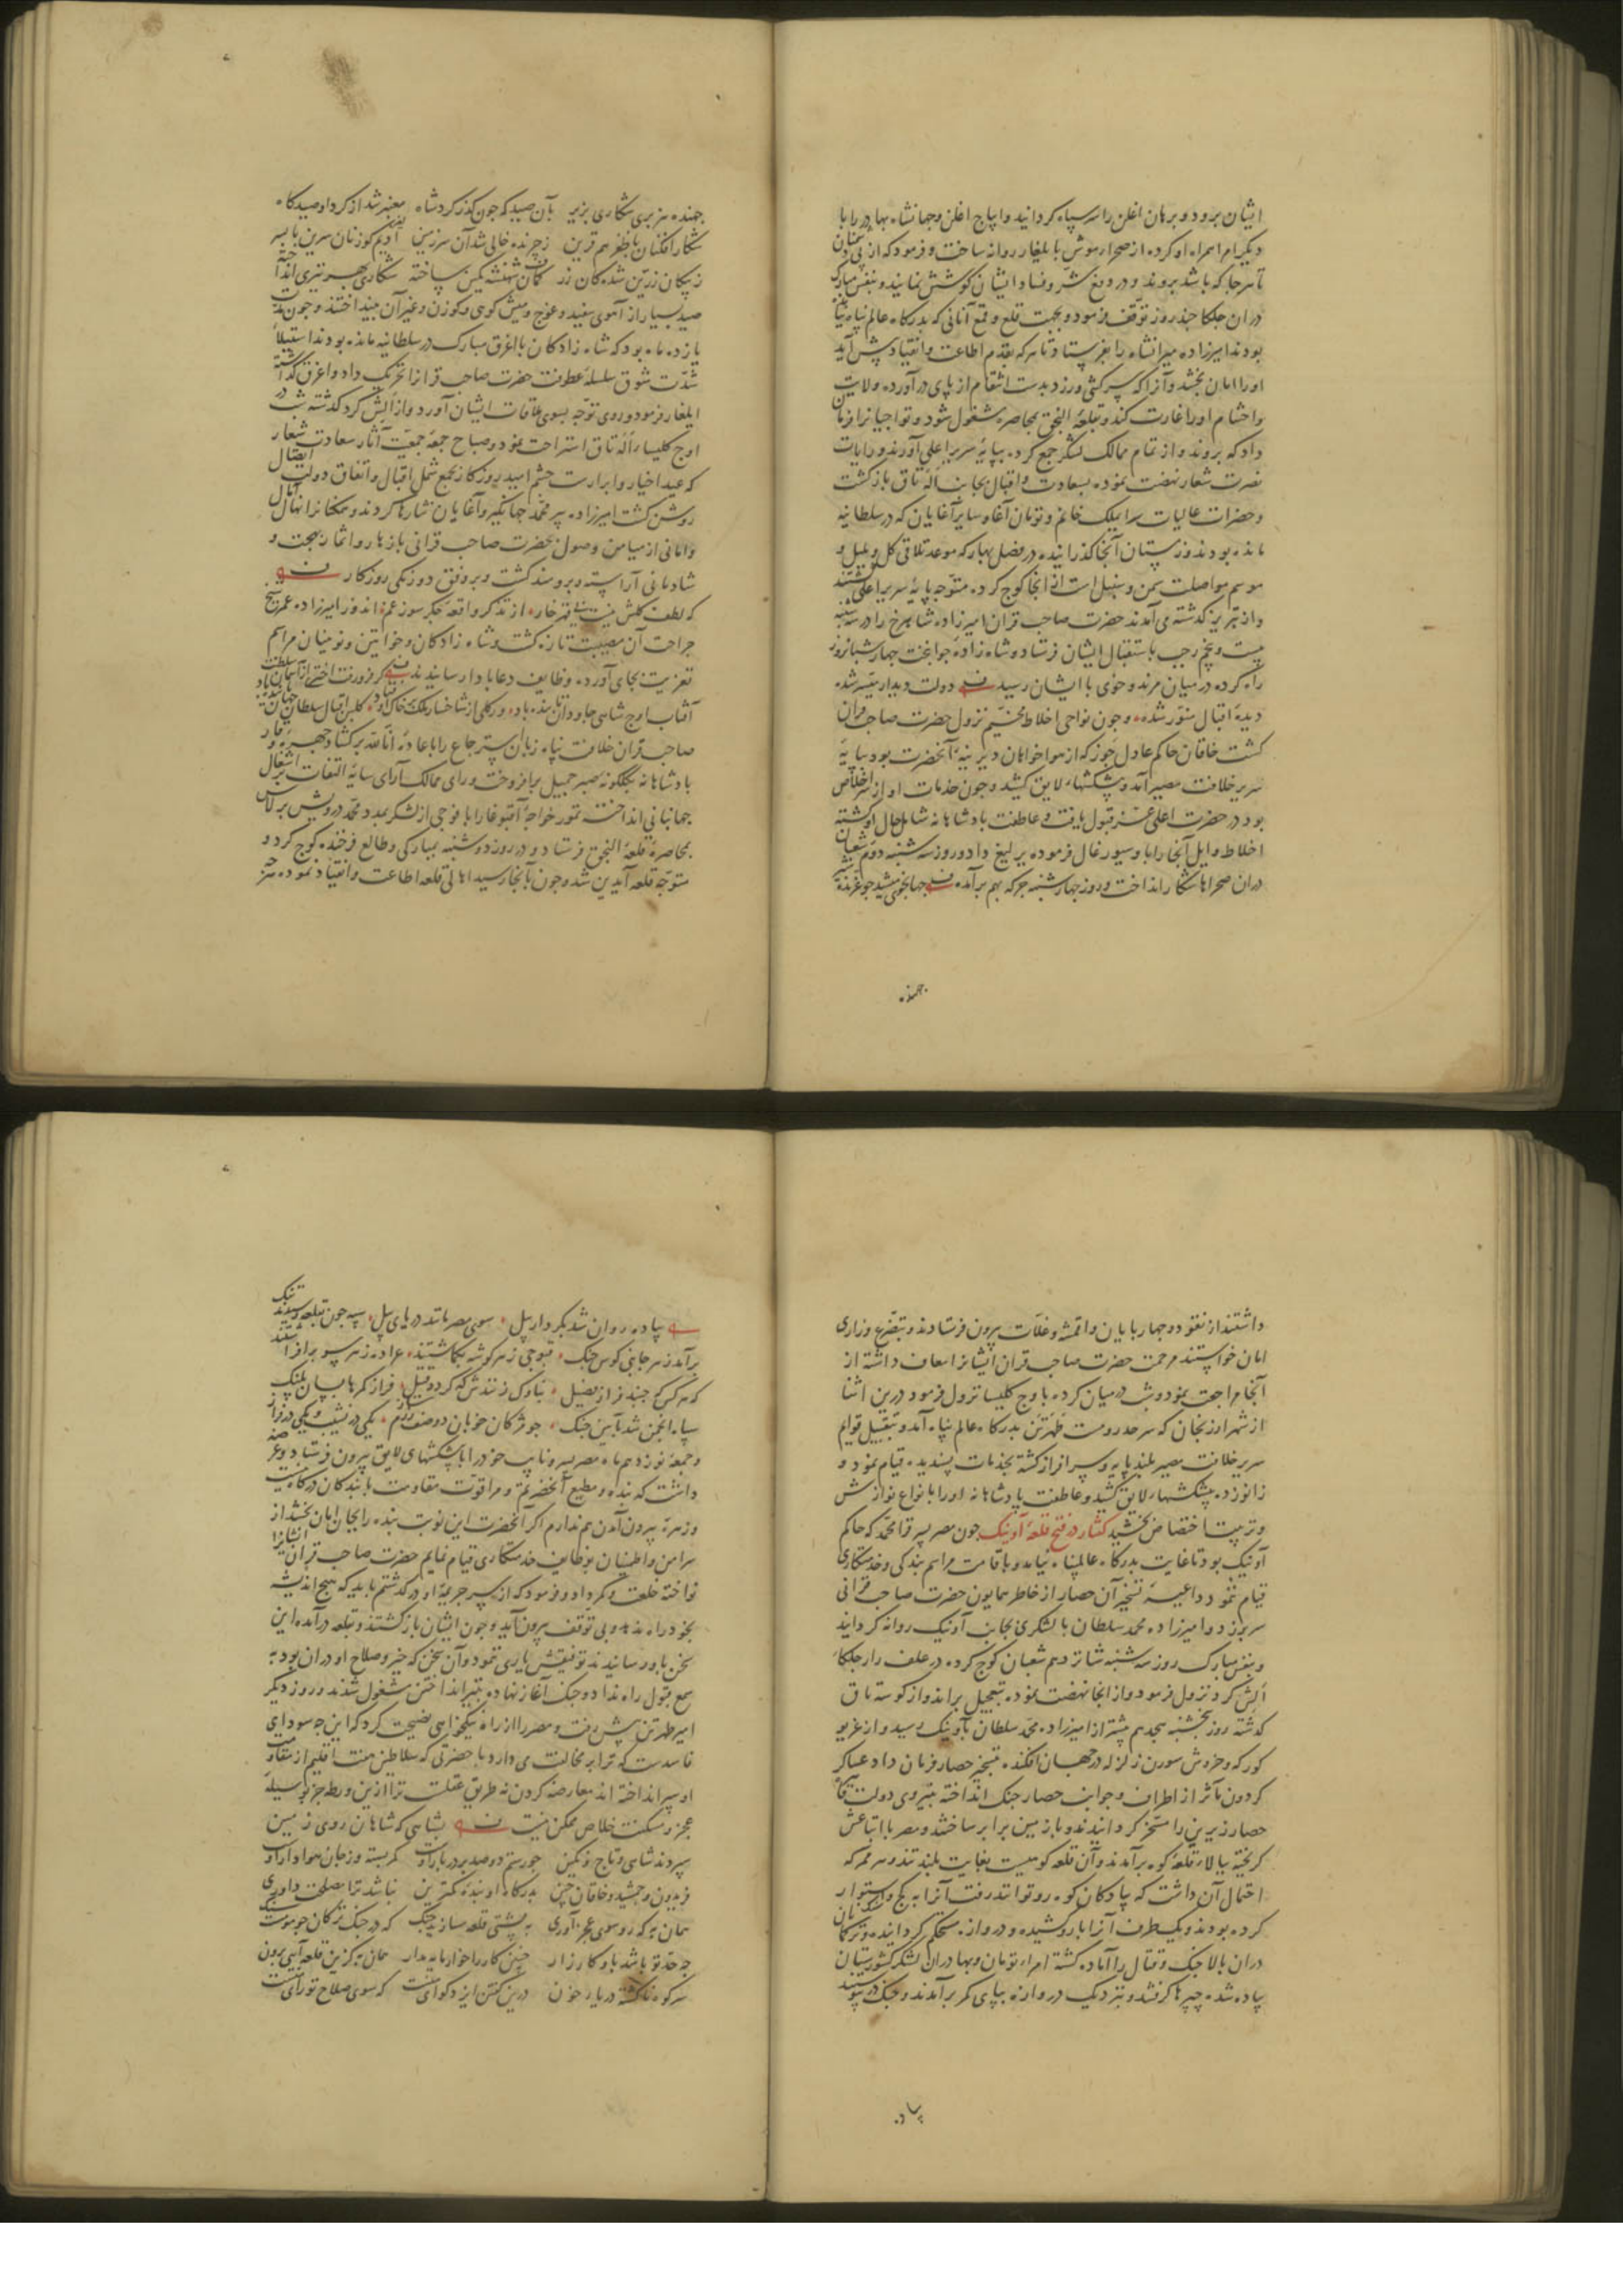 ایشان برود و برهان اغلن را سر سپاه گردانید و ایپاج اغلن و جهانشاه بهادر را با
دیگر امرا همراه او کرده از صحرا موش بایلغار روانه ساخت و فرمود که از پی
تا هر جا که باشد بروند و در دفع شر و فساد ایشان کوشش نمایند و بنفس مبارک
دران جلکا چند روز توقف فرمود و بجهت قلع و قمع آنانی که بدرگاه عالم پناه
بودند امیرزاده میرانشاه را بفرستاد تا هر که بقدم اطاعت و انقیاد پیش آید
او را امان بخشد و آنرا که سر کشی ورزد بدست انتقام از پای درآورده ولایت
و احشام او را غارت کند و بقلعه النجق بمحاصره مشغول شود و تواجیانرا فرمان
داد که بروند و از تمام ممالک لشکر جمع کرده بپایهٔ سریر اعلی آورند و رایات
نصرت شعار نهضت نموده بسعادت و اقبال بجانب اله تاق بازگشت
و حضرات عالیات سرایملک خانم و تومان آغا و سایر آغایان که در سلطانیه
مانده بودند و زمستان آنجا گذرانیده در فصل بهار که موعد تلاقی گل و بلبل و
موسم مواصلت سمن و سنبل است از آنجا کوچ کرده متوجه پایهٔ سریر اعلی
و از تبریز گذشته می آمدند حضرت صاحب قران امیرزاده شاهرخ را در سه شنبه
بیست و پنجم رجب باستقبال ایشان فرستاد و شاه زادهٔ جوانبخت چهار شبانروز
راه کرده در میان مرند و خوی با ایشان رسید دولت دیدار میسر شده
دیدهٔ اقبال منور شده و چون نواحی اخلاط مخیم نزول حضرت صاحب قران
گشت خاقان حاکم عادل جوز که از هواخواهان دیرینهٔ آنحضرت بود بپایهٔ
سریر خلافت مصیر آمد و پیشکشهاء لایق کشید و چون خدمات او از سر اخلاص
بود در حضرت اعلی عز قبول یافت و عاطفت پادشاهانه شامل حال او گشته
اخلاط و ایل آنجا را باو سیورغال فرموده یرلیغ داد و روز سه شنبه دوم شعبان
دران صحراها شکار انداخت و روز چهارشنبه جرکه بهم برآمد جهانجوی
جهنده
جهنده هزبری شکاری بزیر بآن صید که چون گذر کرد شاه معنبر شد از گرد او صیدگاه
شکار افکنان با ظفر هم قرین ز چرنده خالی شد آن سرزمین ادیم گوزنان سرین تا بسر
ز پیکان زرین شده کان زر کمان شهنشه کمین ساخته شکاری بهر تیری انداخته
صید بسیار از آهوی سفید و غوچ و میش کوهی و گوزن و غیر آن بینداختند و چون مدت
یازده ماه بود که شاه زادگان با اغرق مبارک در سلطانیه مانده بودند استیلاء
شدت شوق سلسلهٔ عطوفت حضرت صاحب قرانرا تحریک داد و اغرق گذاشته
ایلغار فرمود و روی توجه بسوی ملاقات ایشان آورد و از الش کرد گذشته شب در
اوچ کلیسا راله تاق استراحت نمود و صباح جمعه جمعیت آثار سعادت شعار
که عید اخیار و ابرارست چشم امید روزگار بجمع شمل اقبال و اتفاق دولت اتصال
روشن گشت امیرزاده پیر محمد جهانگیر و آغایان نثارها کردند و همگنانرا نهال آمال
و امانی از میامن وصول بحضرت صاحب قرانی بازهار و اثمار بهجت و
شادمانی آراسته و برومند گشت و بر وفق دورنگی روزگار
که لطف گلش نیست بی قهر خار از تذکر واقعهٔ جگر سوز غم اندوز امیرزاده عمر شیخ
جراحت آن مصیبت تازه گشت و شاه زادگان و خواتین و نوئینان مراسم
تعزیت بجای آورده وظایف دعا بادا رسانیدند گر فرو رفت اختری از آسمان سلطنت
آفتاب اوج شاهی جاودان تابنده باد ور گلی از شاخسار ملک خاک افتاد گلبن اقبال سلطان جهان پاینده باد
صاحب قران خلافت پناه زبان استرجاع را باعادهٔ انا لله برگشاد و چهرهٔ وقار
پادشاهانه بگلگونه صبر جمیل برافروخت و رای ممالک آرای سایهٔ التفات بر اشغال
جهانبانی انداخته تمور خواجهٔ آقبوغا را با فوجی از لشکر بمدد محمد درویش برلاس
بمحاصرهٔ قلعهٔ النجق فرستاد و در روز دوشنبه بمبارکی و طالع فرخنده کوچ کرد و
متوجه قلعه آیدین شد و چون بآنجا رسید اهالی قلعه اطاعت و انقیاد نموده هر چه
داشتند از نقود و چهارپایان و اقمشه و غلات بیرون فرستادند و بتضرع و زاری
امان خواستند مرحمت حضرت صاحب قران ایشانرا معاف داشته از
آنجا مراجعت نمود و شب در میان کرده باوچ کلیسا نزول فرمود درین اثنا
از شهر ارزنجان که سرحد رومست طهرتن بدرگاه عالم پناه آمد و بتقبیل قوایم
سریر خلافت مصیر بلند پایه و سرافراز گشته بخدمات پسندیده قیام نمود و
زانو زده پیشکشهاء لایق کشید و عاطفت پادشاهانه او را بانواع نوازش
و تربیت اختصاص بخشید گفتار در فتح قلعهٔ آونیک چون مصر پسر قرا محمد که حاکم
آونیک بود تا غایت بدرگاه عالم پناه نیامد و باقامت مراسم بندگی و خدمتکاری
قیام ننمود داعیهٔ تسخیر آن حصار از خاطر همایون حضرت صاحب قرانی
سر برزد و امیرزاده محمد سلطان با لشکری بجانب آونیک روانه گردانید
و بنفس مبارک روز سه شنبه شانزدهم شعبان کوچ کرده در علف زار جلکاء
الش کرد نزول فرمود و از آنجا نهضت نموده تعجیل براند و از کوسه تاق
گذشته روز پنجشنبه هجدهم پیشتر از امیرزاده محمد سلطان بآونیک رسید و از غریو
کورکه و خروش سورن زلزله در جهان افکنده بتسخیر حصار فرمان داد عساکر
گردون مآثر از اطراف و جوانب حصار جنگ انداخته بنیروی دولت قاهره
حصار زیرین را مسخر گردانیدند و با زمین برابر ساختند و مصر با اتباعش
گریخته ببالاء قلعهٔ کوه برآمدند و آن قلعه کوهیست بغایت بلند تند و هر ممر که
احتمال آن داشت که پیادگان کوه رو توانند رفت آنرا به گچ و استوار
کرده بودند و یک طرف آنرا بارو کشیده و دروازه مستحکم گردانیده و
دران بالا جنگ و قتال را آماده گشته امراء تومان و بهادران لشکر کشورستان
پیاده شده چپرها گرفتند و نزدیک دروازه بپای کمر برآمدند و جنگ در پیوستند
پیاده
پیاده روان شد بکردار پیل سوی مصر مانند دریای نیل سپه چون بقلعه رسیدند تنگ
برآمد ز هر جانبی کوس جنگ قبوجی ز هر گوشه بگماشتند عراده ز هر سو برافراشتند
که هر کس که جنبد فراز فصیل بناوک زنندش که گردد قتیل فراز کمرها بسان پلنگ
سپاه انجمن شد بآیین جنگ چو مژگان خوبان دو صف رزم یکی در نشیب و یکی در فراز
و جمعهٔ نوزدهم ماه مصر پسر و نایب خود را با پیشکشهای لایق بیرون فرستاد و عرضه
داشت که بنده و مطیع آنحضرتم و مرا قوت مقاومت با بندگان درگاه نیست
و زهرهٔ بیرون آمدن هم ندارم اگر آنحضرت این نوبت بنده را بجان امان بخشد از
سر امن و اطمینان بوظایف خدمتکاری قیام نمایم حضرت صاحب قران ایشانرا
نواخته خلعت و کمر داد و فرمود که از سر جریمهٔ او در گذشتم باید که هیچ اندیشه
بخود راه ندهد و بی توقف بیرون آید و چون ایشان بازگشتند و بقلعه درآمده این
سخن باو رسانیدند توفیقش یاری ننمود و آن سخن که خیر و صلاح او دران بود به
سمع قبول راه نداد و جنگ آغاز نهاده بتیر انداختن مشغول شدند و روز دیگر
امیر طهرتن پیش رفت و مصر را از راه نیکخواهی نصیحت کرد که این چه سودای
فاسدست که ترا بر مخالفت می دارد با حضرتی که سلاطین هفت اقلیم از مقاومت
او سپر انداخته اند معارضه کردن نه طریق عقلست ترا ازین ورطه جز بوسیلهٔ
عجز و مسکنت خلاص ممکن نیست بشاهی که شاهان روی زمین
سپردند شاهی و تاج و نگین چو رستم دو صد بر در بار او کمر بسته وز جان هوادار او
فریدون و جمشید و خاقان چین بدرگاه او بندهٔ کمترین نباشد ترا مصلحت داوری
همان به که رو سوی عجز آوری به پشتی قلعه سازیچ جنگ که در جنگ ترکان چو مومست سنگ
چه حد تو باشد باو کارزار چنین کار را خوار مایه مدار همان به کزین قلعه آیی برون
سر کوه ناگشته دریای خون درین گفتن ایزد گوای منست که سوی صلاح تو رای منست